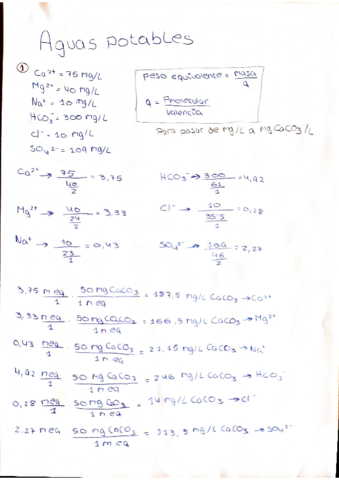 Aguas potables
① Ca²⁺ = 75 mg/L
Mg²⁺ = 40 mg/L
Na⁺ = 10 mg/L
HCO₃⁻ = 300 mg/L
Cl⁻ = 10 mg/L
SO₄²⁻ = 109 mg/L
peso equivalente = masa / q
q = Pmolecular / valencia
Para pasar de mg/L a mg CaCO₃/L
Ca²⁺ → 75 / (40/2) = 3,75
HCO₃⁻ → 300 / (61/1) = 4,92
Mg²⁺ → 40 / (24/2) = 3,33
Cl⁻ → 10 / (35.5/1) = 0,28
Na⁺ → 10 / (23/1) = 0,43
SO₄²⁻ → 109 / (96/2) = 2,27
3,75 meq / 1 · 50 mg CaCO₃ / 1 meq = 187,5 mg/L CaCO₃ → Ca²⁺
3,33 meq / 1 · 50 mg CaCO₃ / 1 meq = 166,5 mg/L CaCO₃ → Mg²⁺
0,43 meq / 1 50 mg CaCO₃ / 1 meq = 21,15 mg/L CaCO₃ → Na⁺
4,92 meq / 1 50 mg CaCO₃ / 1 meq = 246 mg/L CaCO₃ → HCO₃⁻
0,28 meq / 1 50 mg CaCO₃ / 1 meq = 14 mg/L CaCO₃ → Cl⁻
2.27 meq 50 mg CaCO₃ / 1 meq = 113,5 mg/L CaCO₃ → SO₄²⁻